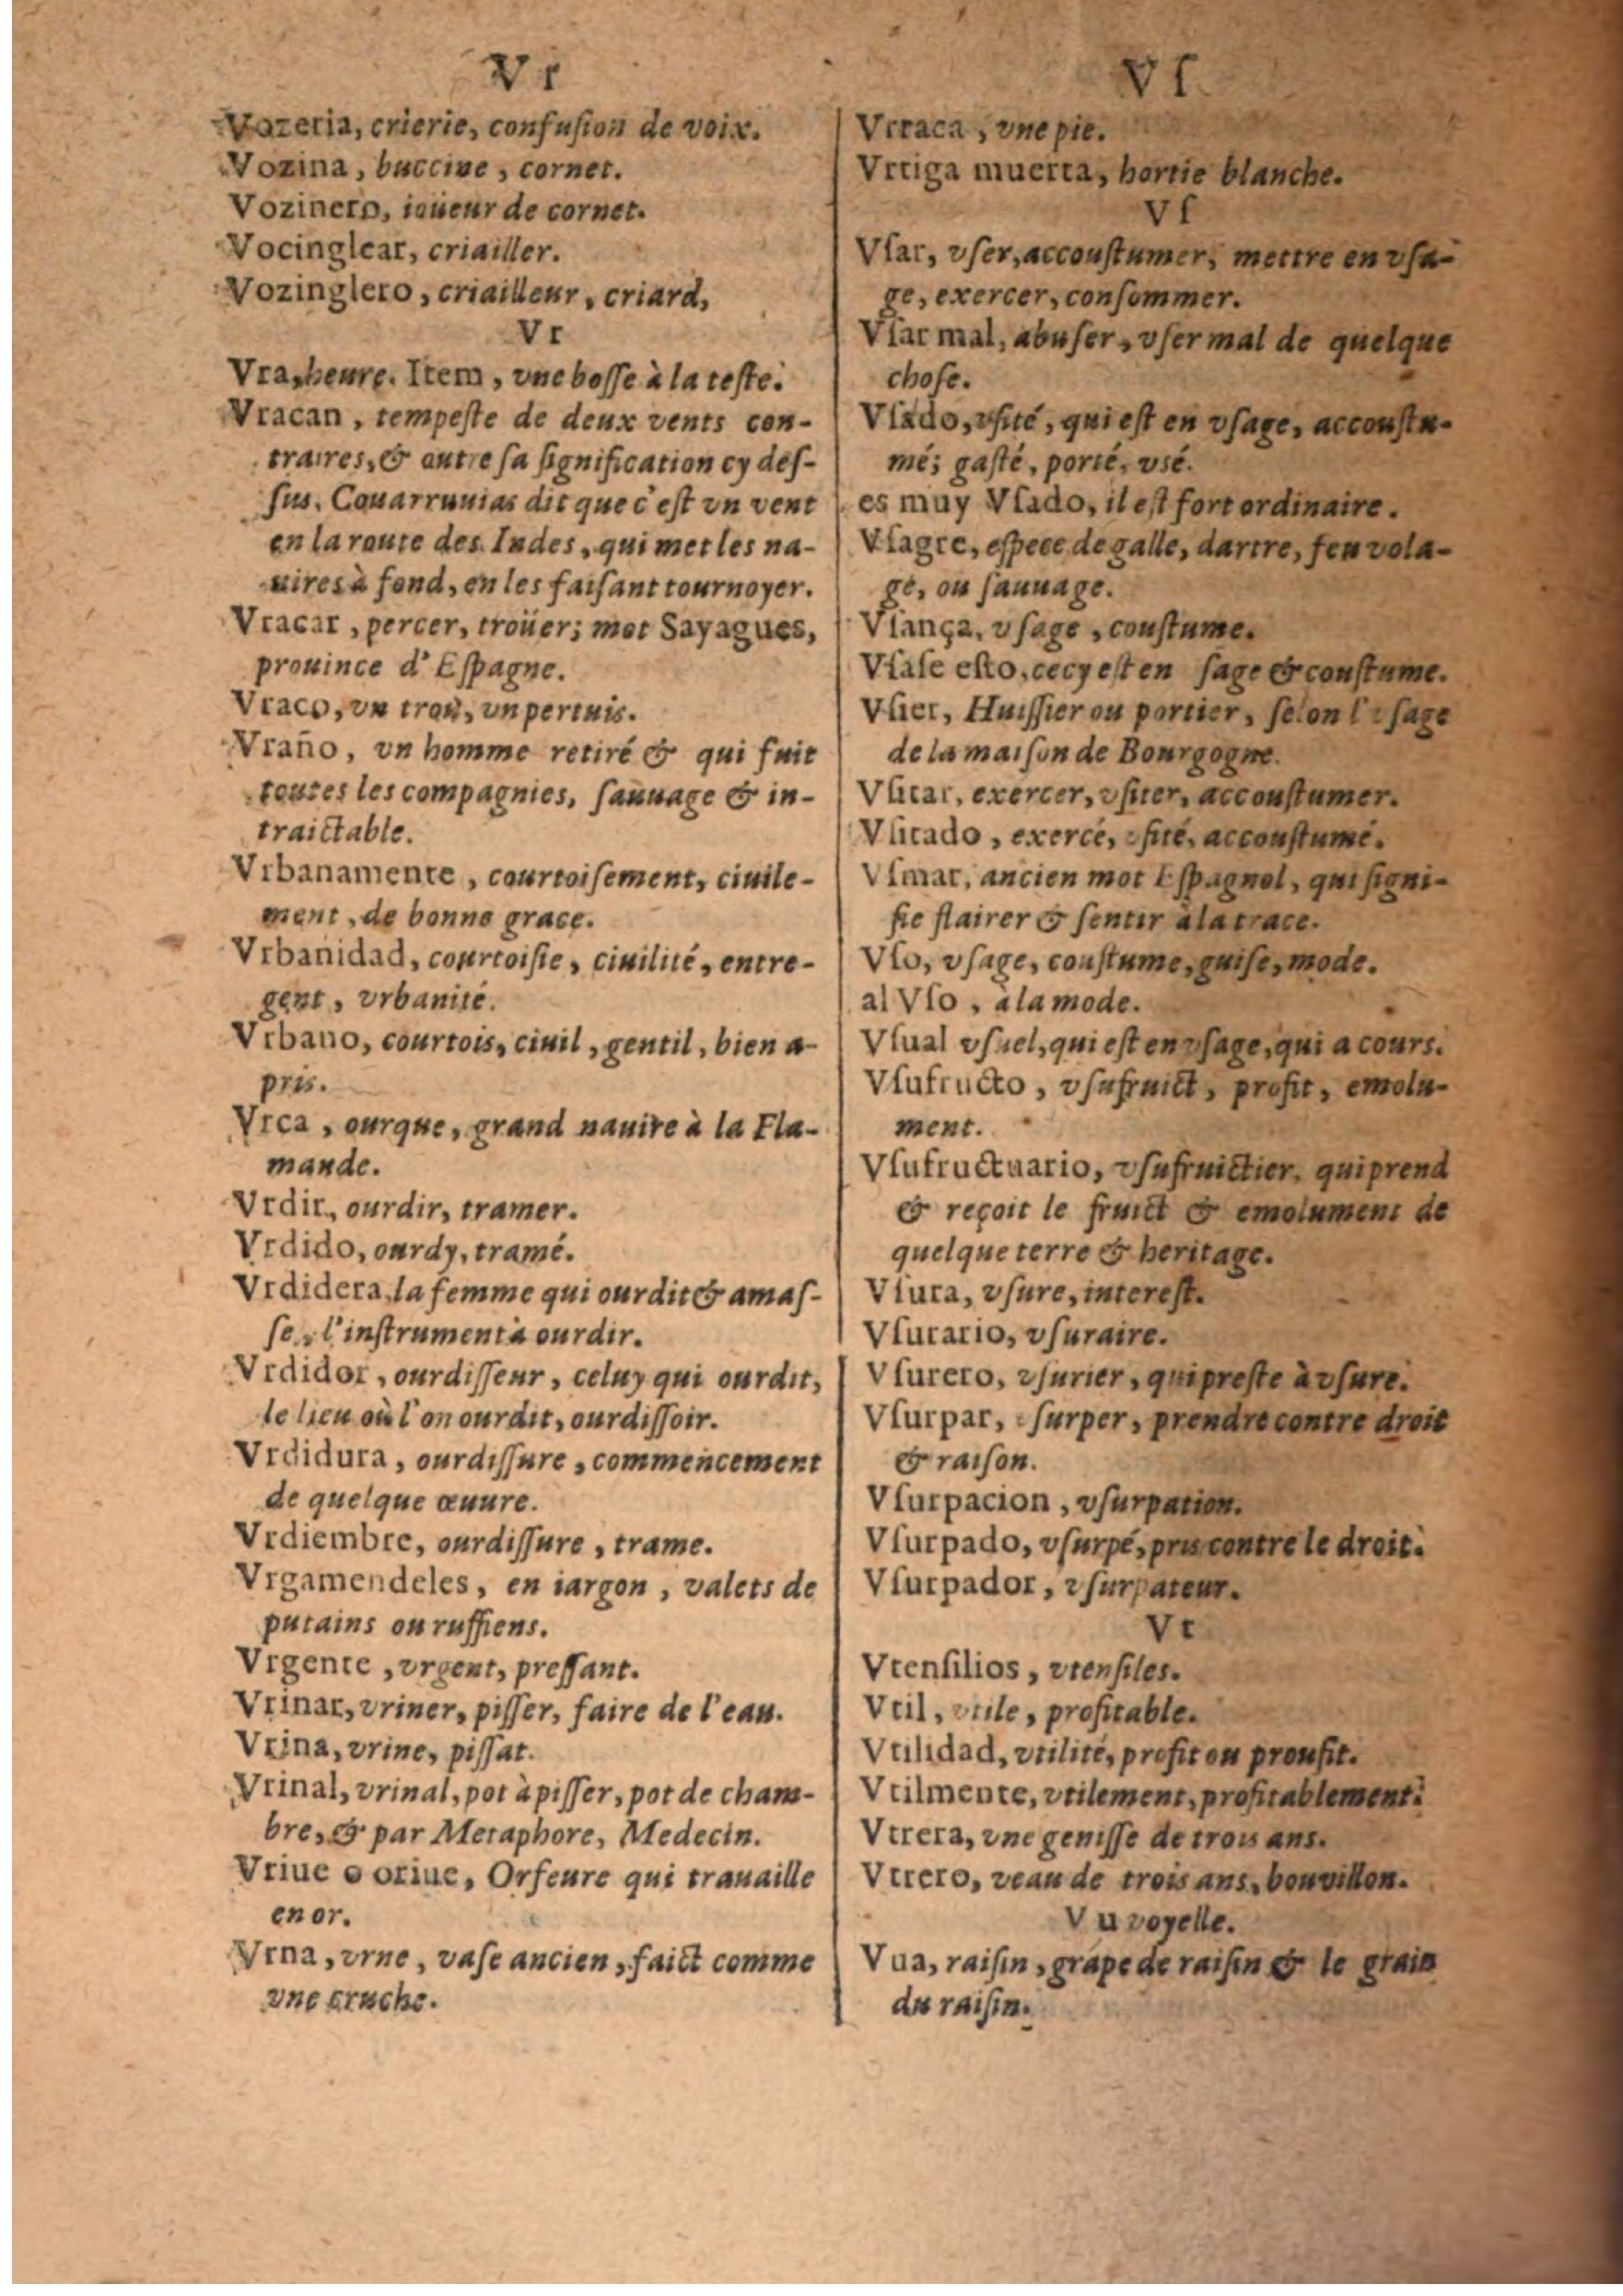 Vr
Vozeria, crierie, confuſion de voix.
Vozina, buccine, cornet.
Vozinero, ioüeur de cornet.
Vocinglear, criailler.
Vozinglero, criailleur, criard,
Vr
Vra, heure. Item, vne boſſe à la teſte.
Vracan, tempeſte de deux vents con-
traires, & outre ſa ſignification cy deſ-
ſus, Couarruuias dit que c'eſt vn vent
en la route des Indes, qui met les na-
uires à fond, en les faiſant tournoyer.
Vracar, percer, troüer; mot Sayagues,
prouince d'Eſpagne.
Vraco, vn troù, vn pertuis.
Vraño, vn homme retiré & qui fuit
toutes les compagnies, ſauuage & in-
traictable.
Vrbanamente, courtoiſement, ciuile-
ment, de bonne grace.
Vrbanidad, courtoiſie, ciuilité, entre-
gent, vrbanité.
Vrbano, courtois, ciuil, gentil, bien a-
pris.
Vrca, ourque, grand nauire à la Fla-
mande.
Vrdir, ourdir, tramer.
Vrdido, ourdy, tramé.
Vrdidera, la femme qui ourdit & amaſ-
ſe, l'inſtrument à ourdir.
Vrdidor, ourdiſſeur, celuy qui ourdit,
le lieu où l'on ourdit, ourdiſſoir.
Vrdidura, ourdiſſure, commencement
de quelque œuure.
Vrdiembre, ourdiſſure, trame.
Vrgamendeles, en iargon, valets de
putains ou ruffiens.
Vrgente, vrgent, preſſant.
Vrinar, vriner, piſſer, faire de l'eau.
Vrina, vrine, piſſat.
Vrinal, vrinal, pot à piſſer, pot de cham-
bre, & par Metaphore, Medecin.
Vriue o oriue, Orfeure qui trauaille
en or.
Vrna, vrne, vaſe ancien, faict comme
vne cruche.
Vſ
Vrraca, vne pie.
Vrtiga muerta, hortie blanche.
Vſ
Vſar, vſer, accouſtumer, mettre en vſa-
ge, exercer, conſommer.
Vſar mal, abuſer, vſer mal de quelque
choſe.
Vſado, vſité, qui eſt en vſage, accouſtu-
mé; gaſté, porté, vsé.
es muy Vſado, il eſt fort ordinaire.
Vſagre, eſpece de galle, dartre, feu vola-
ge, ou ſauuage.
Vſança, vſage, couſtume.
Vſaſe eſto, cecy eſt en ſage & couſtume.
Vſier, Huiſſier ou portier, ſelon l'vſage
de la maiſon de Bourgogne.
Vſitar, exercer, vſiter, accouſtumer.
Vſitado, exercé, vſité, accouſtumé.
Vſmar, ancien mot Eſpagnol, qui ſigni-
fie flairer & ſentir à la trace.
Vſo, vſage, couſtume, guiſe, mode.
al Vſo, à la mode.
Vſual vſuel, qui eſt en vſage, qui a cours.
Vſufructo, vſufruict, profit, emolu-
ment.
Vſufructuario, vſufruictier, qui prend
& reçoit le fruict & emolument de
quelque terre & heritage.
Vſura, vſure, intereſt.
Vſurario, vſuraire.
Vſurero, vſurier, qui preſte à vſure.
Vſurpar, vſurper, prendre contre droit
& raiſon.
Vſurpacion, vſurpation.
Vſurpado, vſurpé, pris contre le droit.
Vſurpador, vſurpateur.
Vt
Vtenſilios, vtenſiles.
Vtil, vtile, profitable.
Vtilidad, vtilité, profit ou proufit.
Vtilmente, vtilement, profitablement.
Vtrera, vne geniſſe de trois ans.
Vtrero, veau de trois ans, bouvillon.
V u voyelle.
Vua, raiſin, grape de raiſin & le grain
du raiſin.